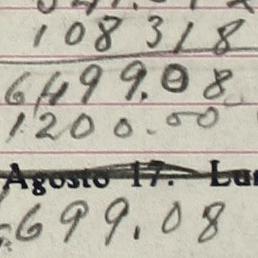 108318
6499.08
1200.00
Agosto 17. Lu
699.08